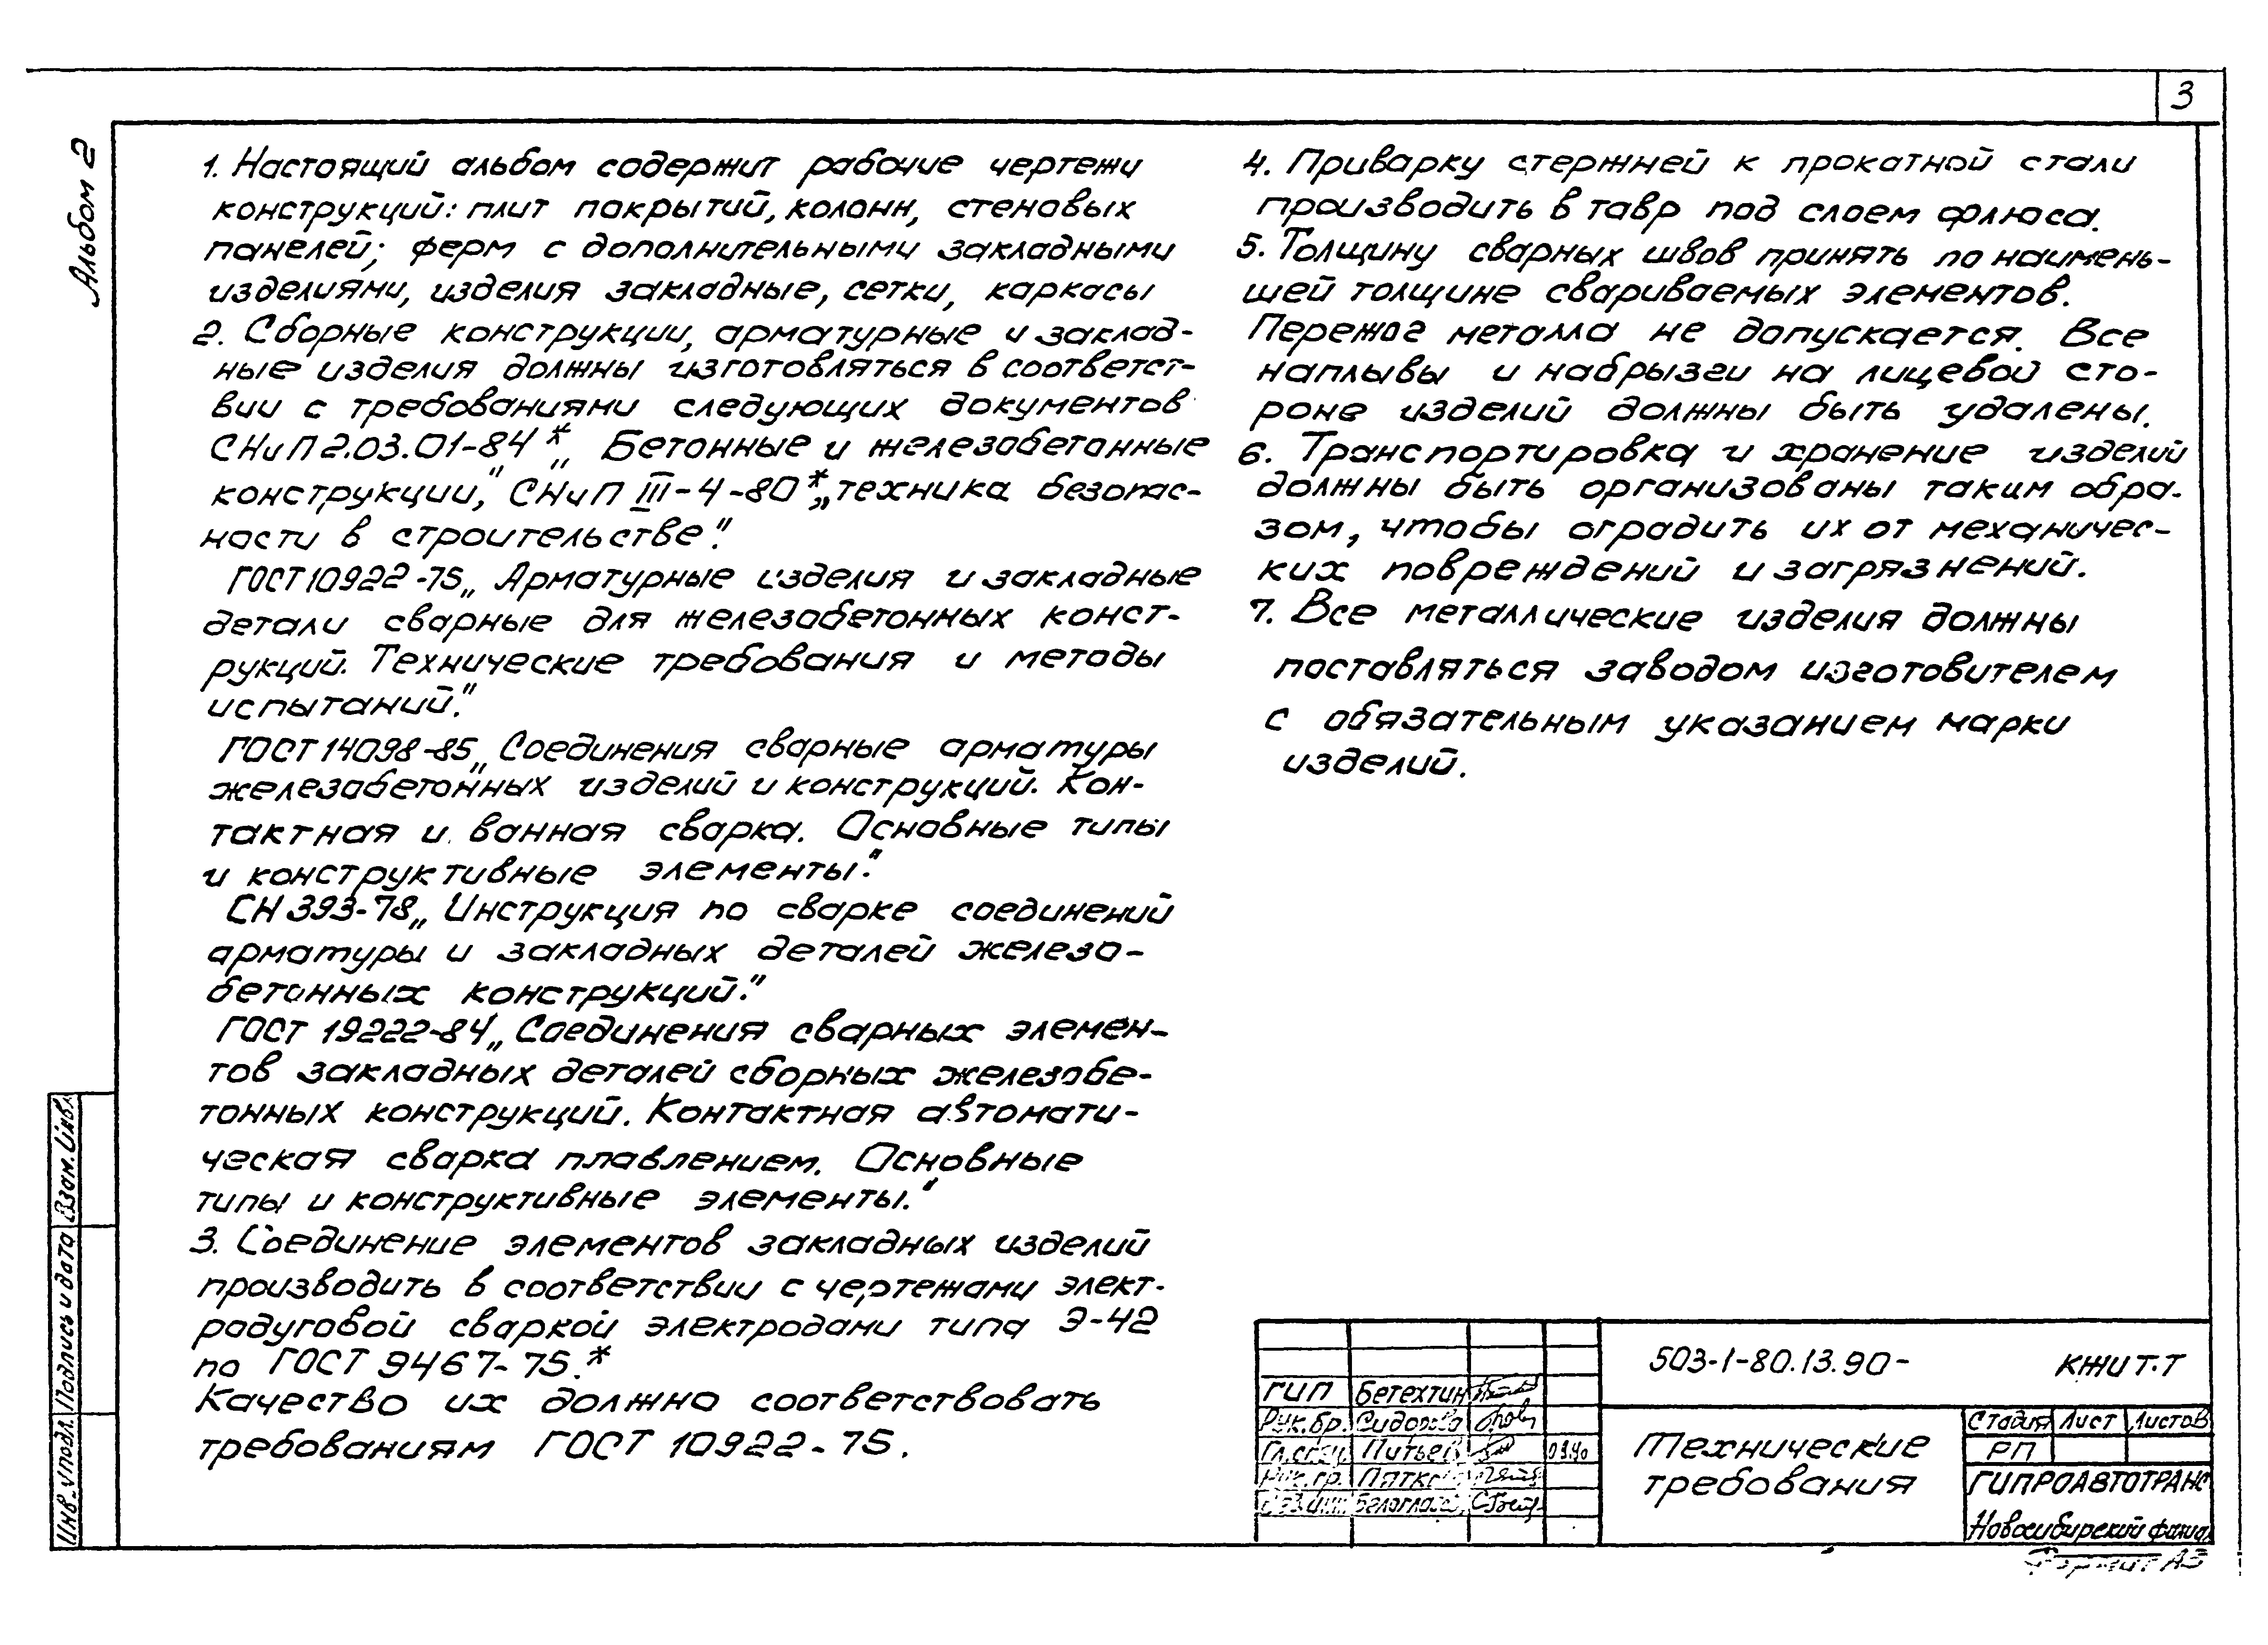 3
Альбом 2
1. Настоящий альбом содержит рабочие чертежи
конструкций: плит покрытий, колонн, стеновых
панелей; ферм с дополнительными закладными
изделиями, изделия закладные, сетки, каркасы
2. Сборные конструкции, арматурные и заклад-
ные изделия должны изготовляться в соответст-
вии с требованиями следующих документов
СНиП 2.03.01-84* „Бетонные и железобетонные
конструкции," СНиП III-4-80* „техника безопас-
ности в строительстве".
ГОСТ 10922-75 „Арматурные изделия и закладные
детали сварные для железобетонных конст-
рукций. Технические требования и методы
испытаний."
ГОСТ 14098-85 „Соединения сварные арматуры
железобетонных изделий и конструкций. Кон-
тактная и ванная сварка. Основные типы
и конструктивные элементы."
СН 393-78 „Инструкция по сварке соединений
арматуры и закладных деталей железо-
бетонных конструкций."
ГОСТ 19222-84 „Соединения сварных элемен-
тов закладных деталей сборных железобе-
тонных конструкций. Контактная автомати-
ческая сварка плавлением. Основные
типы и конструктивные элементы."
3. Соединение элементов закладных изделий
производить в соответствии с чертежами элект-
родуговой сваркой электродами типа Э-42
по ГОСТ 9467-75.*
Качество их должно соответствовать
требованиям ГОСТ 10922-75.
4. Приварку стержней к прокатной стали
производить в тавр под слоем флюса.
5. Толщину сварных швов принять по наимень-
шей толщине свариваемых элементов.
Пережог металла не допускается. Все
наплывы и набрызги на лицевой сто-
роне изделий должны быть удалены.
6. Транспортировка и хранение изделий
должны быть организованы таким обра-
зом, чтобы оградить их от механичес-
ких повреждений и загрязнений.
7. Все металлические изделия должны
поставляться заводом изготовителем
с обязательным указанием марки
изделий.
Инв.№подл. Подпись и дата Взам.Инв.
503-1-80.13.90- КЖИТ.Т
ГИП Бетехтин
Рук.бр. Сидорова
Гл.спец. Питьев
Технические
требования
Стадия Лист Листов
РП
ГИПРОАВТОТРАНС
Новосибирский филиал
Формат А3